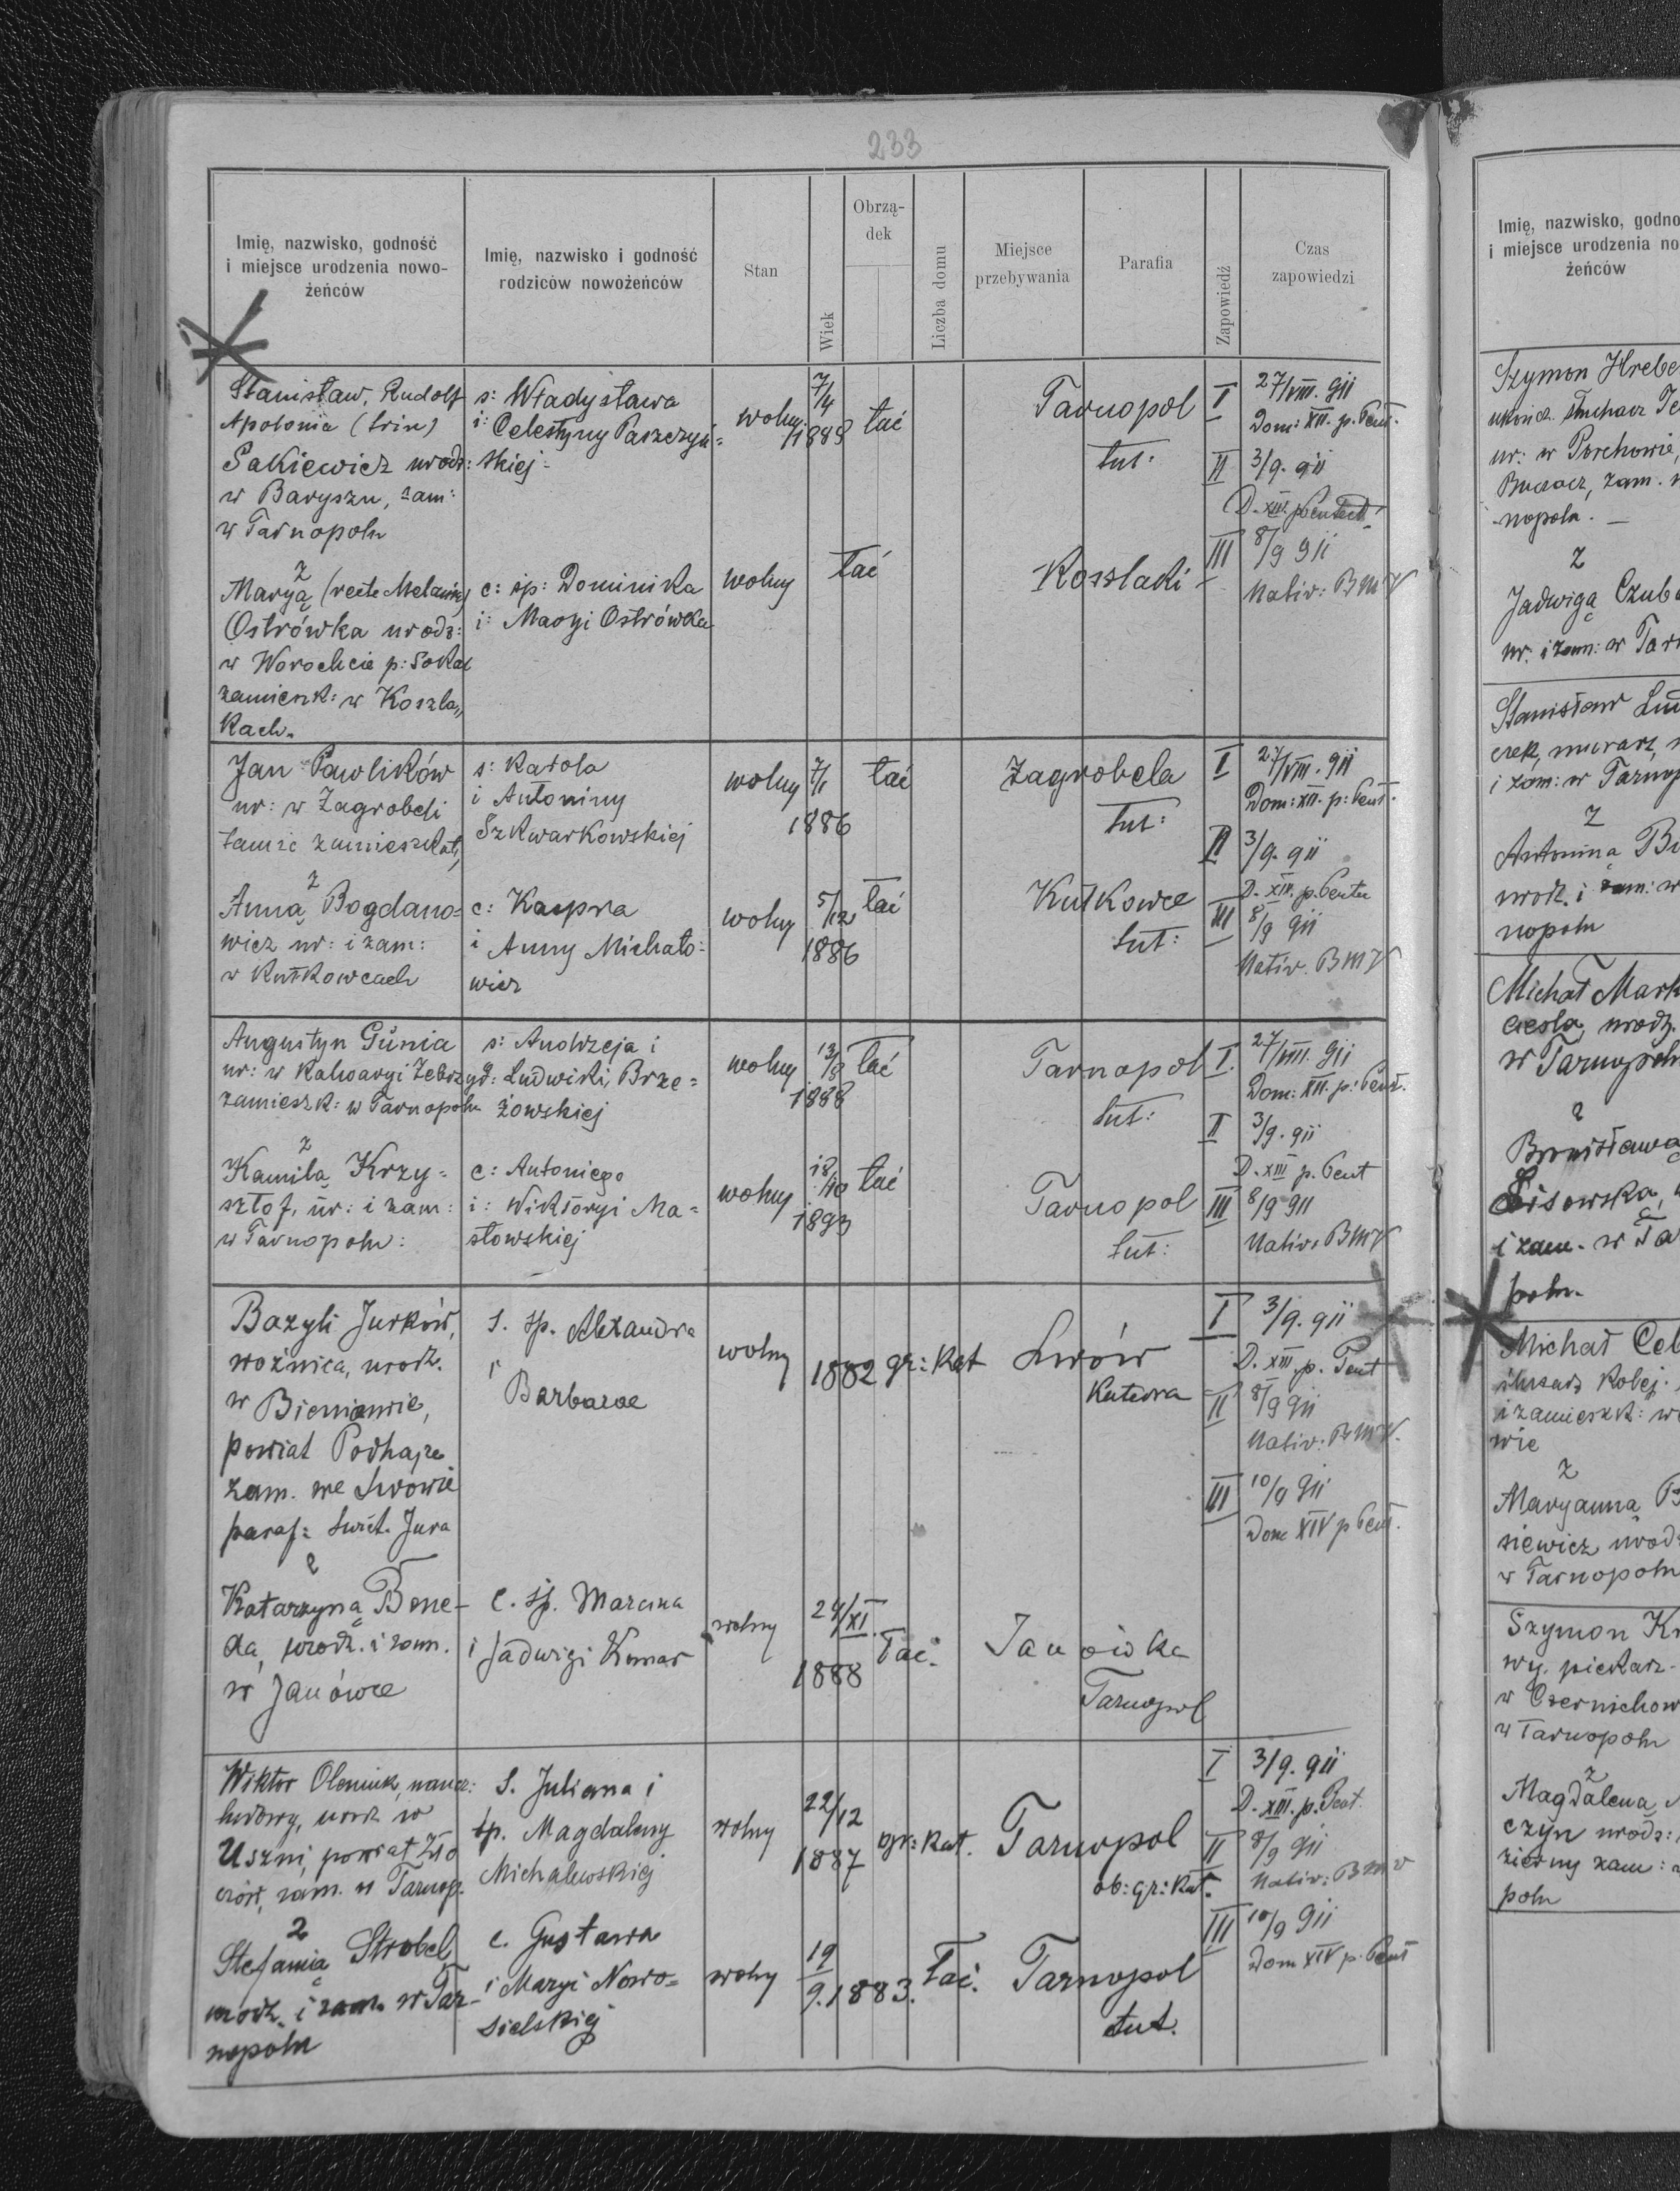 233
Imię, nazwisko, godność
i miejsce urodzenia nowo-
żeńców
Imię, nazwisko i godność
rodziców nowożeńców
Stan
Wiek
Obrzą-
dek
Liczba domu
Miejsce
przebywania
Parafia
Zapowiedź
Czas
zapowiedzi
Stanisław, Rudolf
Apolonia (trin)
Sakiewicz urodz:
w Baryszu, zam:
w Tarnopolu
s: Władysława
i: Celestyny Paszczyń=
skiej
wolny
7/4
1888
łać
Tarnopol
tut:
I 27/VIII. 911
Dom: XII. p. Pent.
II 3/9. 911
D. XIII. p. Pentect
III 8/9 911
Nativ: BMV
z
Maryą (recte Melanią)
Ostrówka urodz:
w Worochcie p: Sokal
zamieszk: w Koszla„
kach.
c: śp: Dominika
i: Maryi Ostrówka
wolny
łać
Koszlaki
Jan Pawlików
ur: w Zagrobeli
tamże zamieszkał,
s: Karola
i Antoniny
Szkwarkowskiej
wolny
7/1
1886
łać
Zagrobela
tut:
I 27/VIII. 911
Dom: XII. p: Pent.
II 3/9. 911
D. XIV. p. Pente
III 8/9 911
Nativ. BMV
z
Anną Bogdano=
wicz ur: i zam:
w Kutkowcach
c: Kaspra
i Anny Michało=
wicz
wolny
5/12
1886
łać
Kutkowce
tut:
Augustyn Gunia
ur: w Kalwaryi Zebrzyd:
zamieszk: w Tarnopolu
s: Andrzeja i
Ludwiki Brze=
żowskiej
wolny
13/8
1888
łać
Tarnopol
tut:
I. 27/VIII. 911
Dom: XII. p: Pent.
II 3/9. 911
D. XIII p. Pent
III 8/9 911
Nativ: BMV
z
Kamilą Krzy=
sztof, ur: i zam:
w Tarnopolu:
c: Antoniego
i: Wiktoryi Ma=
słowskiej
wolny
18/10
1893
łać
Tarnopol
tut:
Bazyli Jurków,
woźnica, urodz.
w Bieniawie,
powiat Podhajce
zam. we Lwowie
paraf: Świet. Jura
s. śp. Alexandra
i
Barbarae
wolny
1882
gr: kat
Lwów
Katedra
I 3/9. 911
D. XIII p. Pent
II 8/9 911
Nativ: BMV.
III 10/9 911
Dom XIV p Pent.
z
Katarzyną Bene-
da, urodz. i zam.
w Janówce
c. śp. Marcina
i Jadwigi Komar
wolny
24/XI.
1888
Łać.
Janówka
Tarnopol
Wiktor Oleniuk, naucz:
ludowy, urodz w
Uszni, powiat Zło
czów, zam. w Tarnop.
s. Juliana i
śp. Magdaleny
Michalewskiej
wolny
22/12
1887
gr: kat.
Tarnopol
ob: gr: kat.
I 3/9. 911
D. XIII. p. Pent.
II 8/9 911
Nativ: BMV
III 10/9 911
Dom XIV p. Pent
z
Stefanią Strobel
urodz. i zam. w Tar-
nopolu
c. Gustawa
i Maryi Nowo=
sielskiej
wolny
19
9. 1883.
Łać.
Tarnopol
tut.
Imię, nazwisko, godno
i miejsce urodzenia no
żeńców
Szymon Hrebe
ur: w Porchowie,
Buczacz, zam. w
nopolu. —
z
Jadwigą Czuba
ur. i zam: w Tarn
Stanisław
murarz,
i zam: w Tarnop
z
Antoniną
urodz. i zam: w
nopolu
Michał Mark
cieśla, urodz.
w Tarnopolu
z
Bronisławą
Lisowska,
i zam. w Ta
polu.
Michał Ceb
ślusarz kolej.
i zamieszk: we
wie
z
Maryanną
siewicz urodz
w Tarnopolu
Szymon Kr
wy. piekarz.
w Czernichow
w Tarnopolu
z
Magdalena
czyn urodz:
zam:
polu